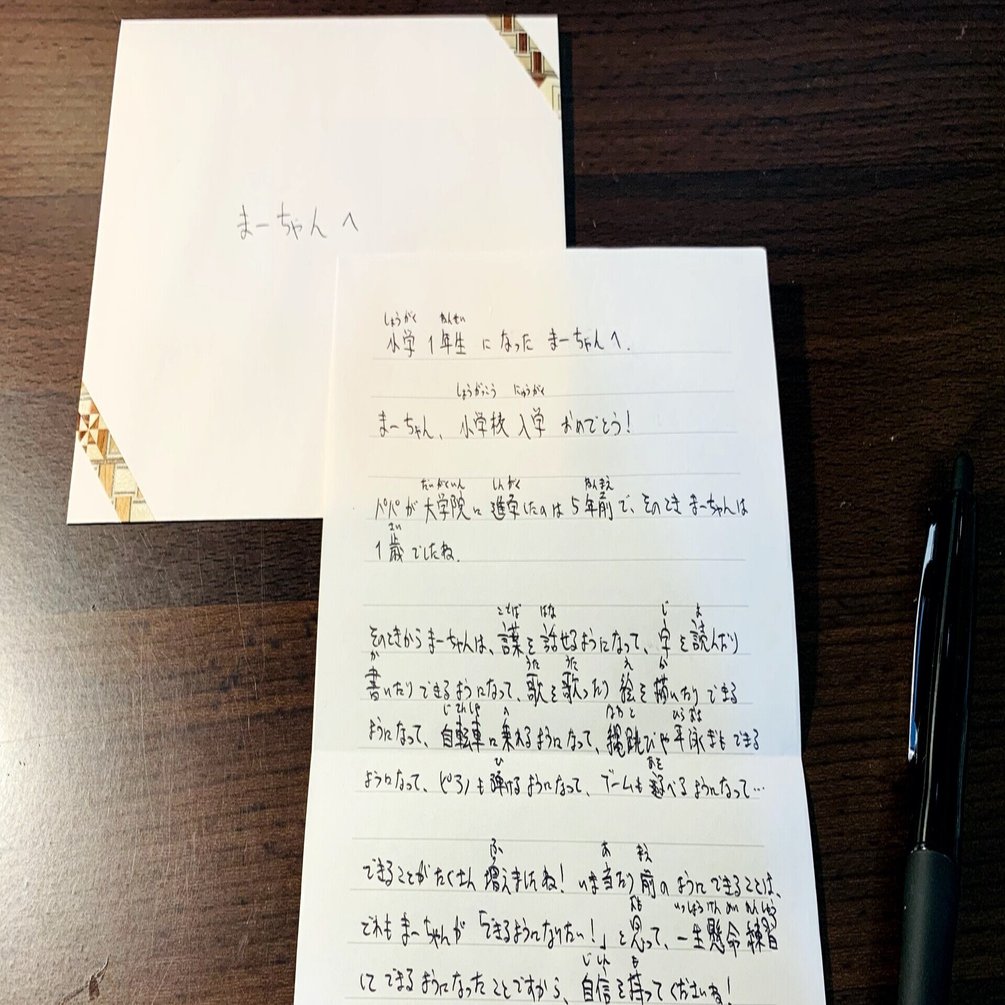 まーちゃんへ
しょうがく ねんせい
小学1年生になったまーちゃんへ.
しょうがっこう にゅうがく
まーちゃん、小学校入学おめでとう!
だいがくいん しんがく ねんまえ
パパが大学院に進学したのは5年前で、そのときまーちゃんは
さい
1歳でしたね.
ことば はな じ よ
そのときからまーちゃんは、言葉を話せるようになって、字を読んだり
か うた うた え か
書いたりできるようになって、歌を歌ったり絵を描いたりできる
じてんしゃ の なわと ひらおよ
ようになって、自転車に乗れるようになって、縄跳びや平泳ぎもできる
ひ あそ
ようになって、ピアノも弾けるようになって、ゲームも遊べるようになって…
ふ あ まえ
できることがたくさん増えましたね!いま当たり前のようにできることは、
おも いっしょうけんめいれんしゅう
どれもまーちゃんが「できるようになりたい!」と思って、一生懸命練習
じしん も
してできるようになったことですから、自信を持ってくださいね!